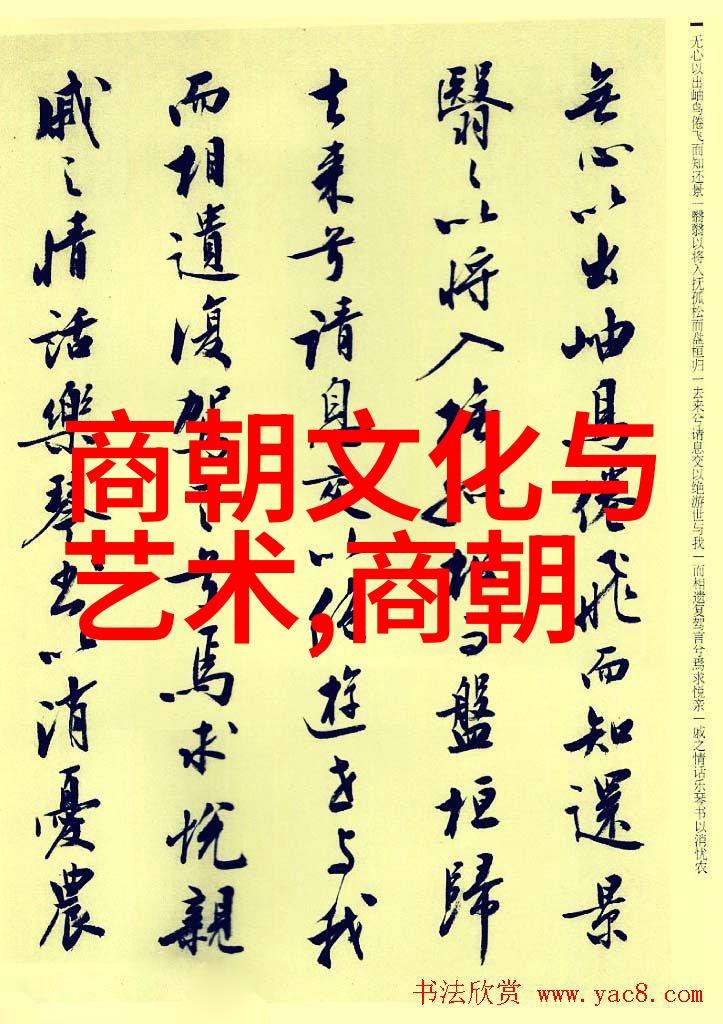 无心以出岫鸟倦飞而知还景一翳翳以将入抚孤松而盘桓归一去来兮请息交以绝游世与我一而相遗复驾言兮焉求悦亲一戚之情话乐琴书以消忧农
無心以出岫鳥倦飛而知還景
翳々以将入撫孤松而盤桓歸
去来兮请息交以絶遊世与我
而相遺復駕言兮焉求悦親
戚之情話樂琴書以消憂農
商朝文化与
艺术,商朝
书法欣赏 www.yac8.com